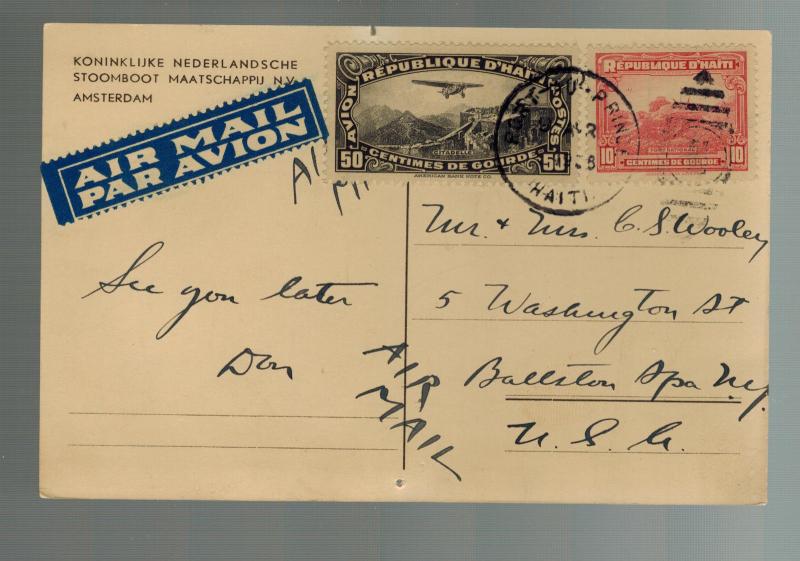 KONINKLIJKE NEDERLANDSCHE
STOOMBOOT MAATSCHAPPIJ N.V.
AMSTERDAM
AIR MAIL
PAR AVION
RÉPUBLIQUE D'HAITI
AVION
POSTES
CITADELLE
50 CENTIMES DE GOURDE 50
AMERICAN BANK NOTE CO.
RÉPUBLIQUE D'HAITI
10 CENTIMES DE GOURDE 10
HAITI
See you later
Don
AIR
MAIL
Mr. & Mrs. C. S. Wooley
5 Washington St
Ballston Spa N.Y.
U. S. A.